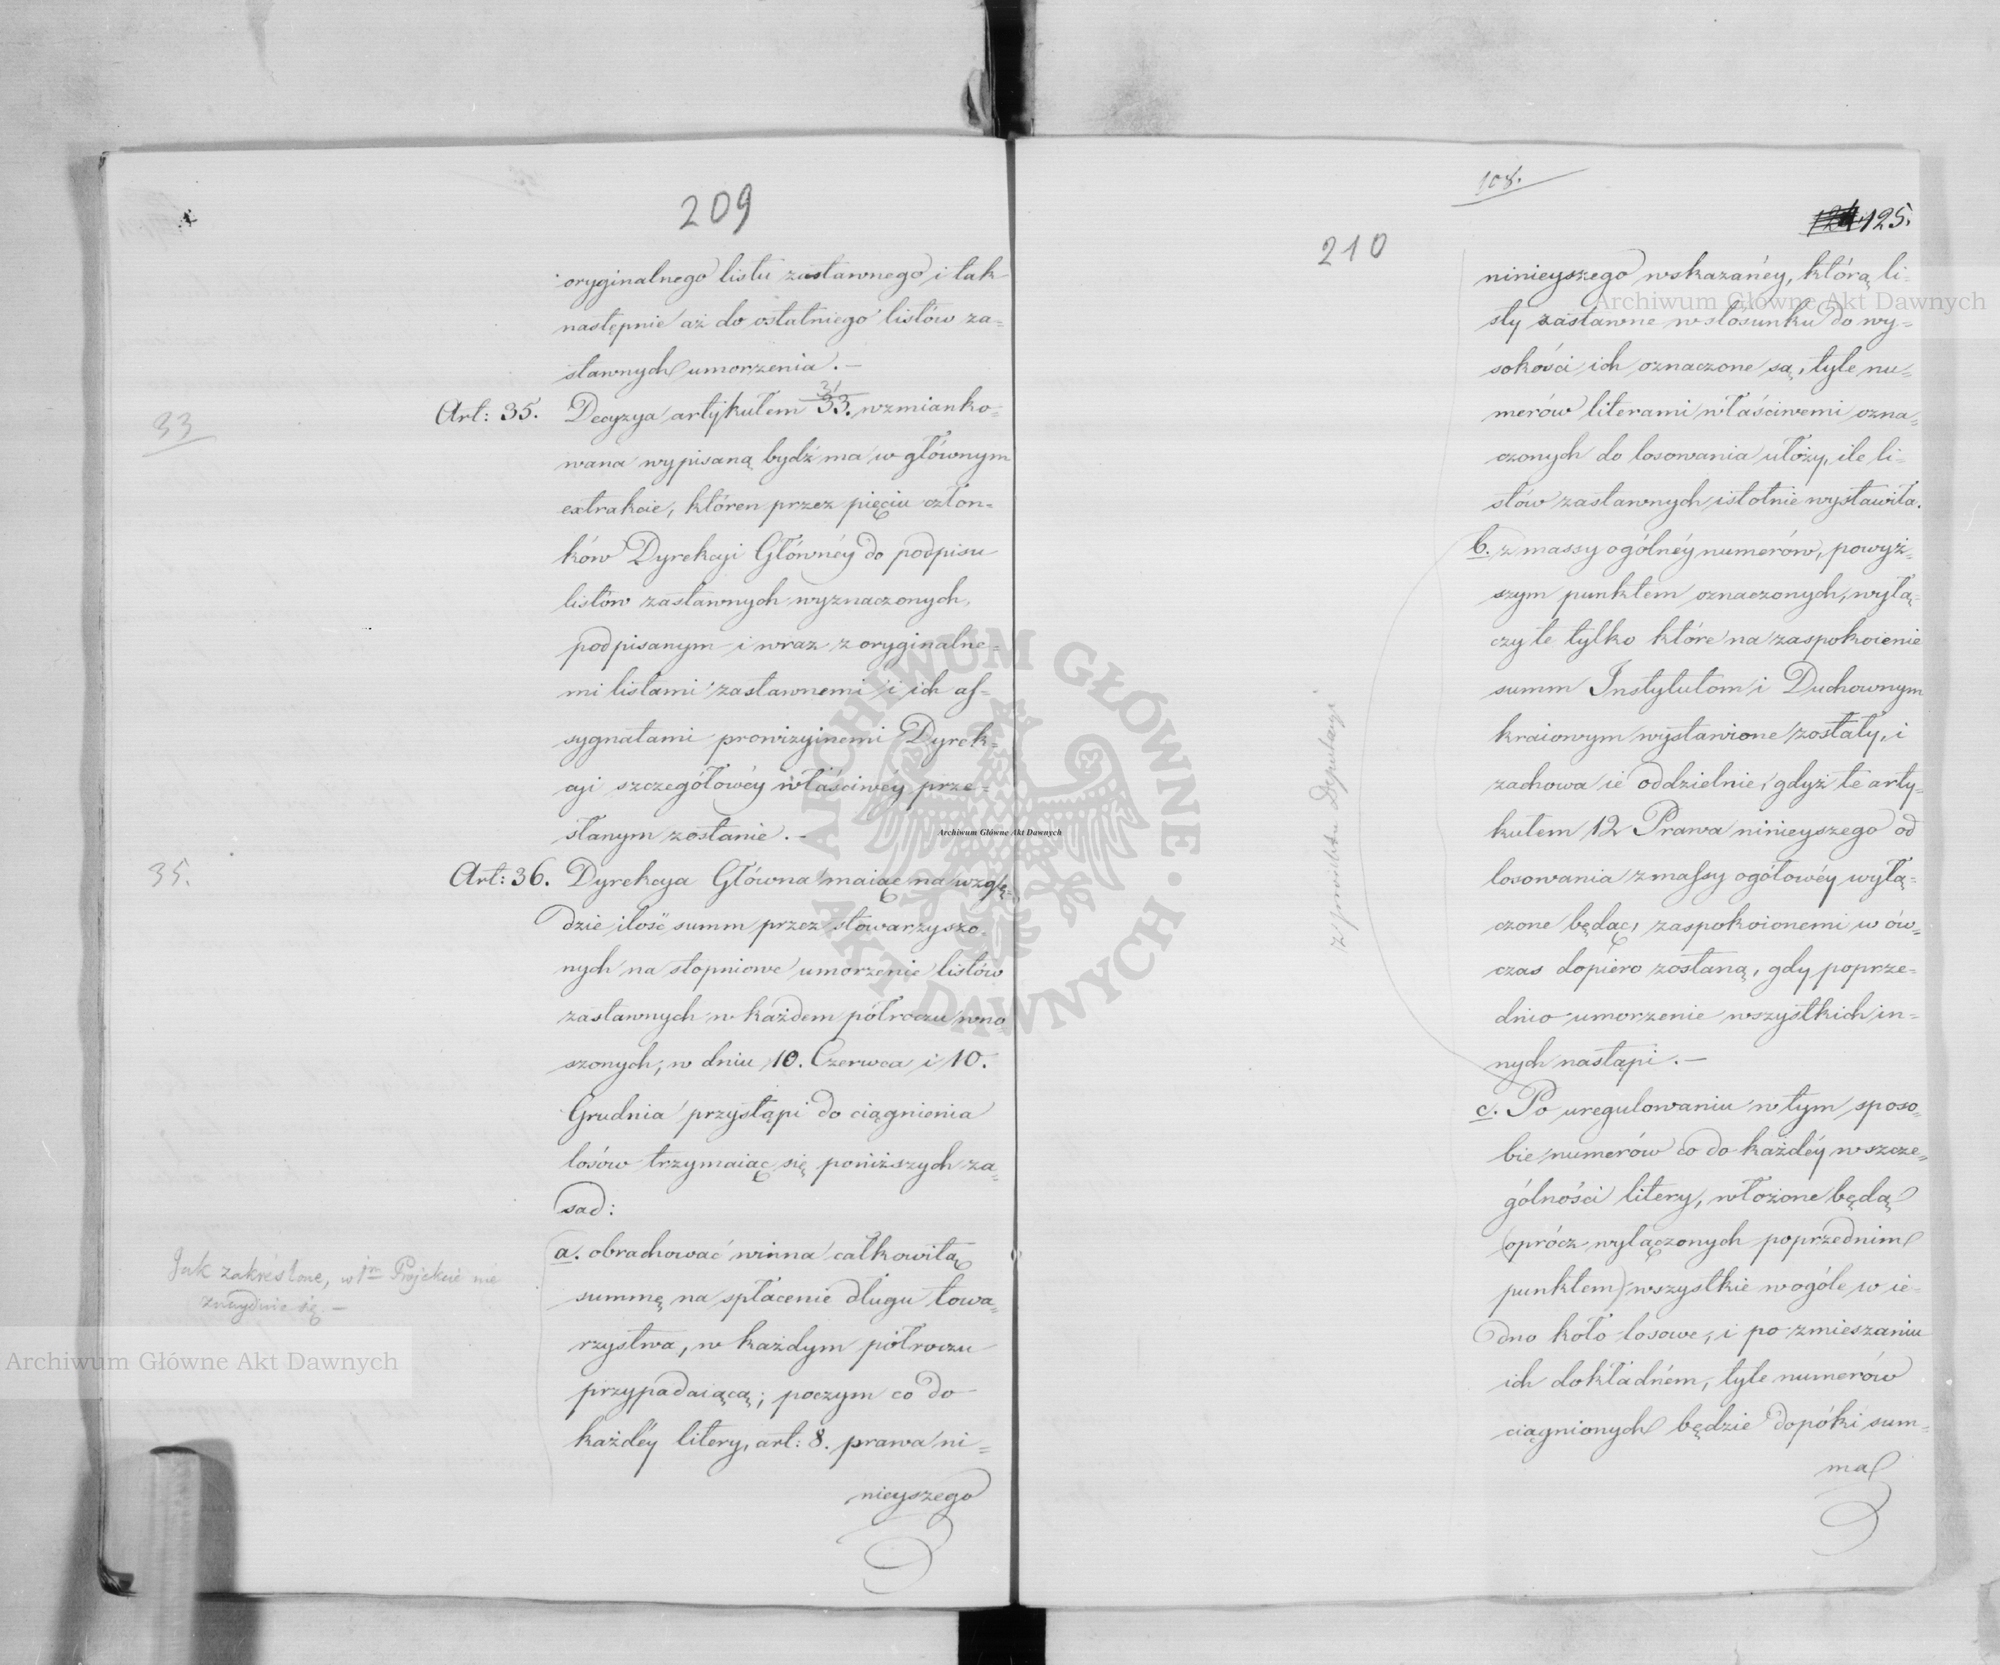 209
oryginalnego listu zastawnego i tak
następnie aż do ostatniego listów za=
stawnych umorzenia. —
33
Art: 35. Decyzya artykułem 33. wzmianko=
31
wana wypisaną bydź ma w głównym
extrakcie, któren przez pięciu człon=
ków Dyrekcyi Główney do podpisu
listów zastawnych wyznaczonych,
podpisanym i wraz z oryginalne=
mi listami zastawnemi i ich as=
sygnatami prowizyinemi Dyrek=
cyi szczegółowéy właściwéy prze=
słanym zostanie. —
35.
Art: 36. Dyrekcya Główna maiąc na wzglę=
dzie ilość summ przez stowarzyszo=
nych na stopniowe umorzenie listów
zastawnych w każdem półroczu wno=
szonych, w dniu 10. Czerwca i 10.
Grudnia przystąpi do ciągnienia
losów trzymaiąc się poniższych za=
sad:
a. obrachować winna całkowitą
Jak zakreślone, w 1m Projekcie nie
znayduie się. —
summę na spłacenie długu towa=
rzystwa, w każdym półroczu
przypadaiącą; poczym co do
każdéy litery, art: 8. prawa ni=
nieyszego
108.
125.
210
ninieyszego wskazanéy, którą li=
sty zastawne w stósunku do wy=
sokości ich oznaczone są, tyle nu=
merów literami właściwemi ozna=
czonych do losowania ułoży, ile li=
stów zastawnych istotnie wystawiła.
b. z massy ogólnéy numerów, powyż=
szym punktem oznaczonych, wyłą=
czy te tylko które na zaspokoienie
summ Instytutom i Duchownym
kraiowym wystawione zostały, i
zachowa ie oddzielnie, gdyż te arty=
kułem 12 Prawa ninieyszego od
losowania z massy ogółowéy wyłą=
czone będąc, zaspokoionemi w ów=
czas dopiero zostaną, gdy poprze=
dnio umorzenie wszystkich in=
nych nastąpi. —
z projektu Deputacyi
c. Po uregulowaniu w tym sposo=
bie numerów co do każdéy w szcze=
gólności litery, włożone będą
(oprócz wyłączonych poprzednim
punktem) wszystkie wogóle w ie=
dno koło losowe, i po zmieszaniu
ich dokładném, tyle numerów
ciągnionych będzie dopóki sum=
ma
Archiwum Główne Akt Dawnych
Archiwum Główne Akt Dawnych
Archiwum Główne Akt Dawnych
ARCHIWUM GŁÓWNE · AKT DAWNYCH ·